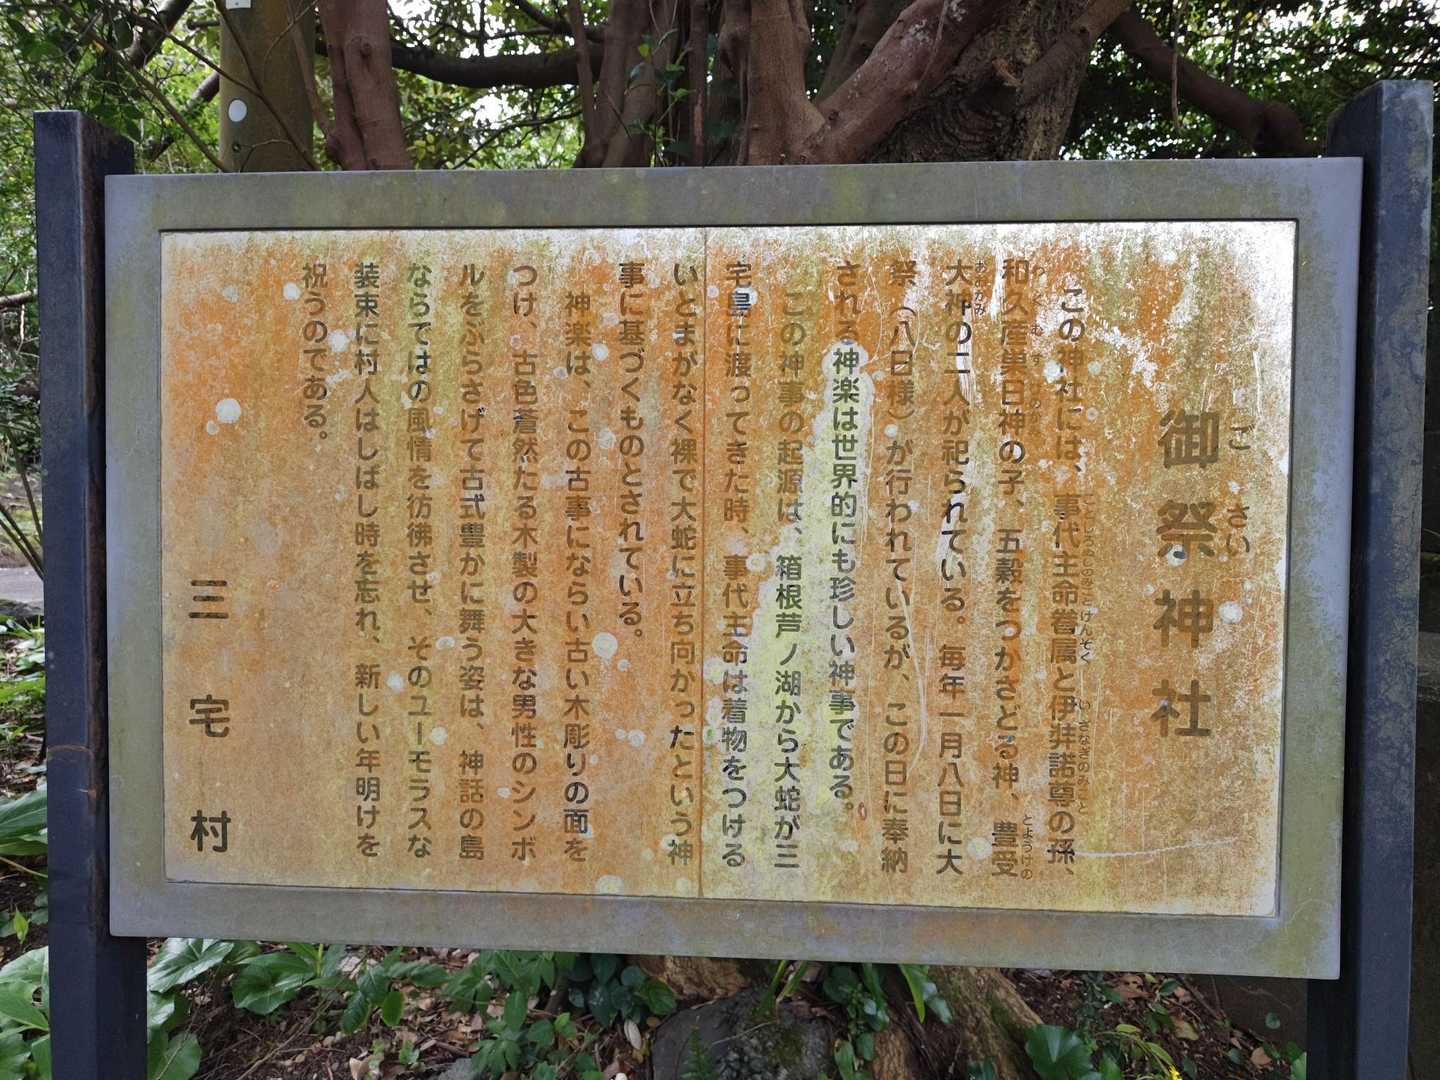 御祭神社
ごさい
この神社には、事代主命眷属と伊弉諾尊の孫、
ことしろぬしのみことけんぞく いざなぎのみこと
和久産巣日神の子、五穀をつかさどる神、豊受
わくむすひのかみ とようけの
大神の二人が祀られている。毎年一月八日に大
おおかみ
祭（八日様）が行われているが、この日に奉納
される神楽は世界的にも珍しい神事である。
この神事の起源は、箱根芦ノ湖から大蛇が三
宅島に渡ってきた時、事代主命は着物をつける
いとまがなく裸で大蛇に立ち向かったという神
事に基づくものとされている。
神楽は、この古事にならい古い木彫りの面を
つけ、古色蒼然たる木製の大きな男性のシンボ
ルをぶらさげて古式豊かに舞う姿は、神話の島
ならではの風情を彷彿させ、そのユーモラスな
装束に村人はしばし時を忘れ、新しい年明けを
祝うのである。
三宅村